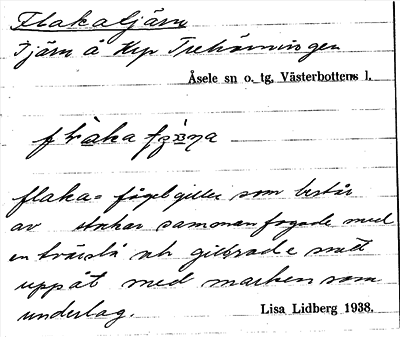 Flakatjärn
Tjärn å Krp Trehörningen
Åsele sn o. tg. Västerbottens l.
flaka = fågelgiller som består
av stockar sammanfogade med
en träslå och gillrade snett
uppåt med marken som
underlag.
Lisa Lidberg 1938.